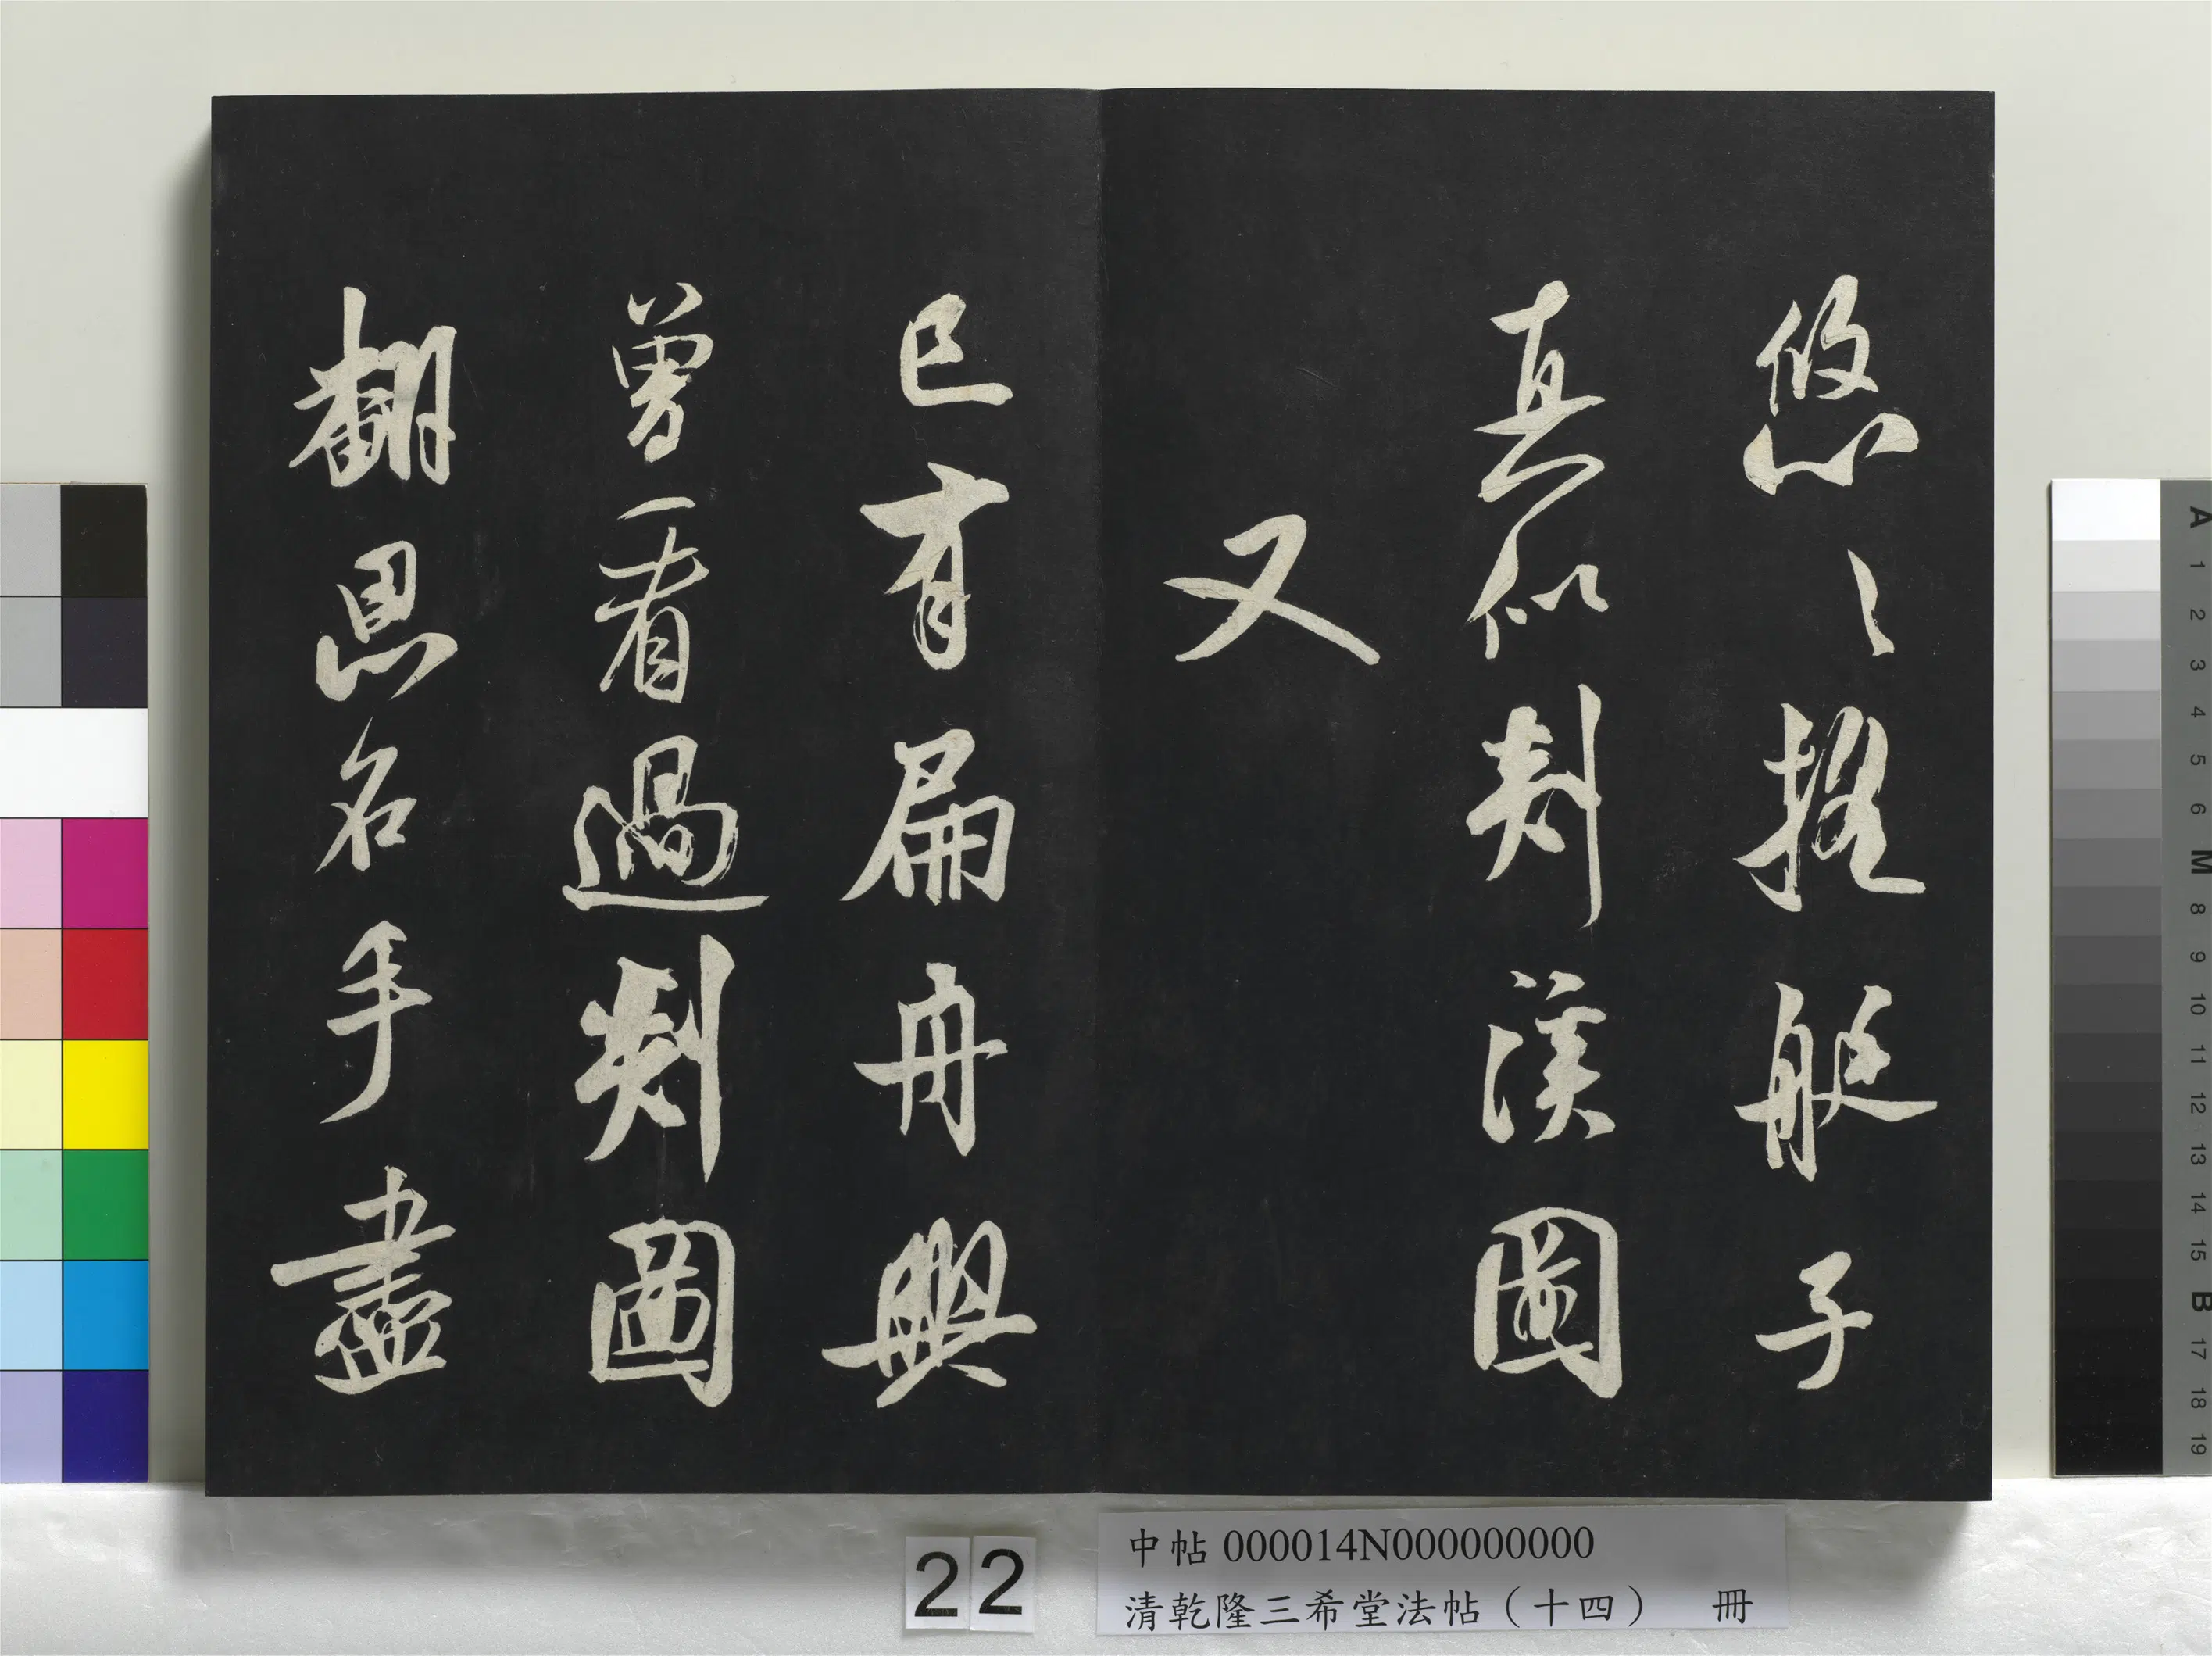 悠〻搖艇子
真似剡溪圖
又
已有扁舟興
曾看過剡圖
翻思名手盡
22
中帖 000014N000000000
清乾隆三希堂法帖（十四） 冊
A 1 2 3 4 5 6 M 8 9 10 11 12 13 14 15 B 17 18 19